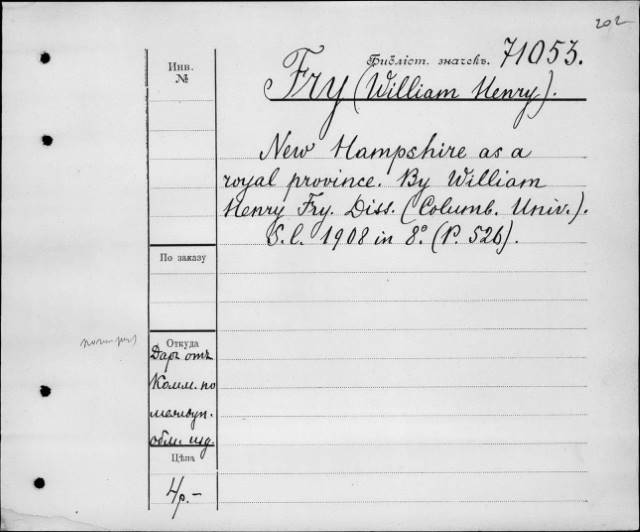 202
Библіот. значекъ. 71053.
Инв.
№
Fry (William Henry).
New Hampshire as a
royal province. By William
Henry Fry. Diss. (Columb. Univ.).
S. l. 1908 in 8° (P. 526).
По заказу
Откуда
Даръ отъ
Комм. по
междун.
обм. изд.
Цѣна
4р.-